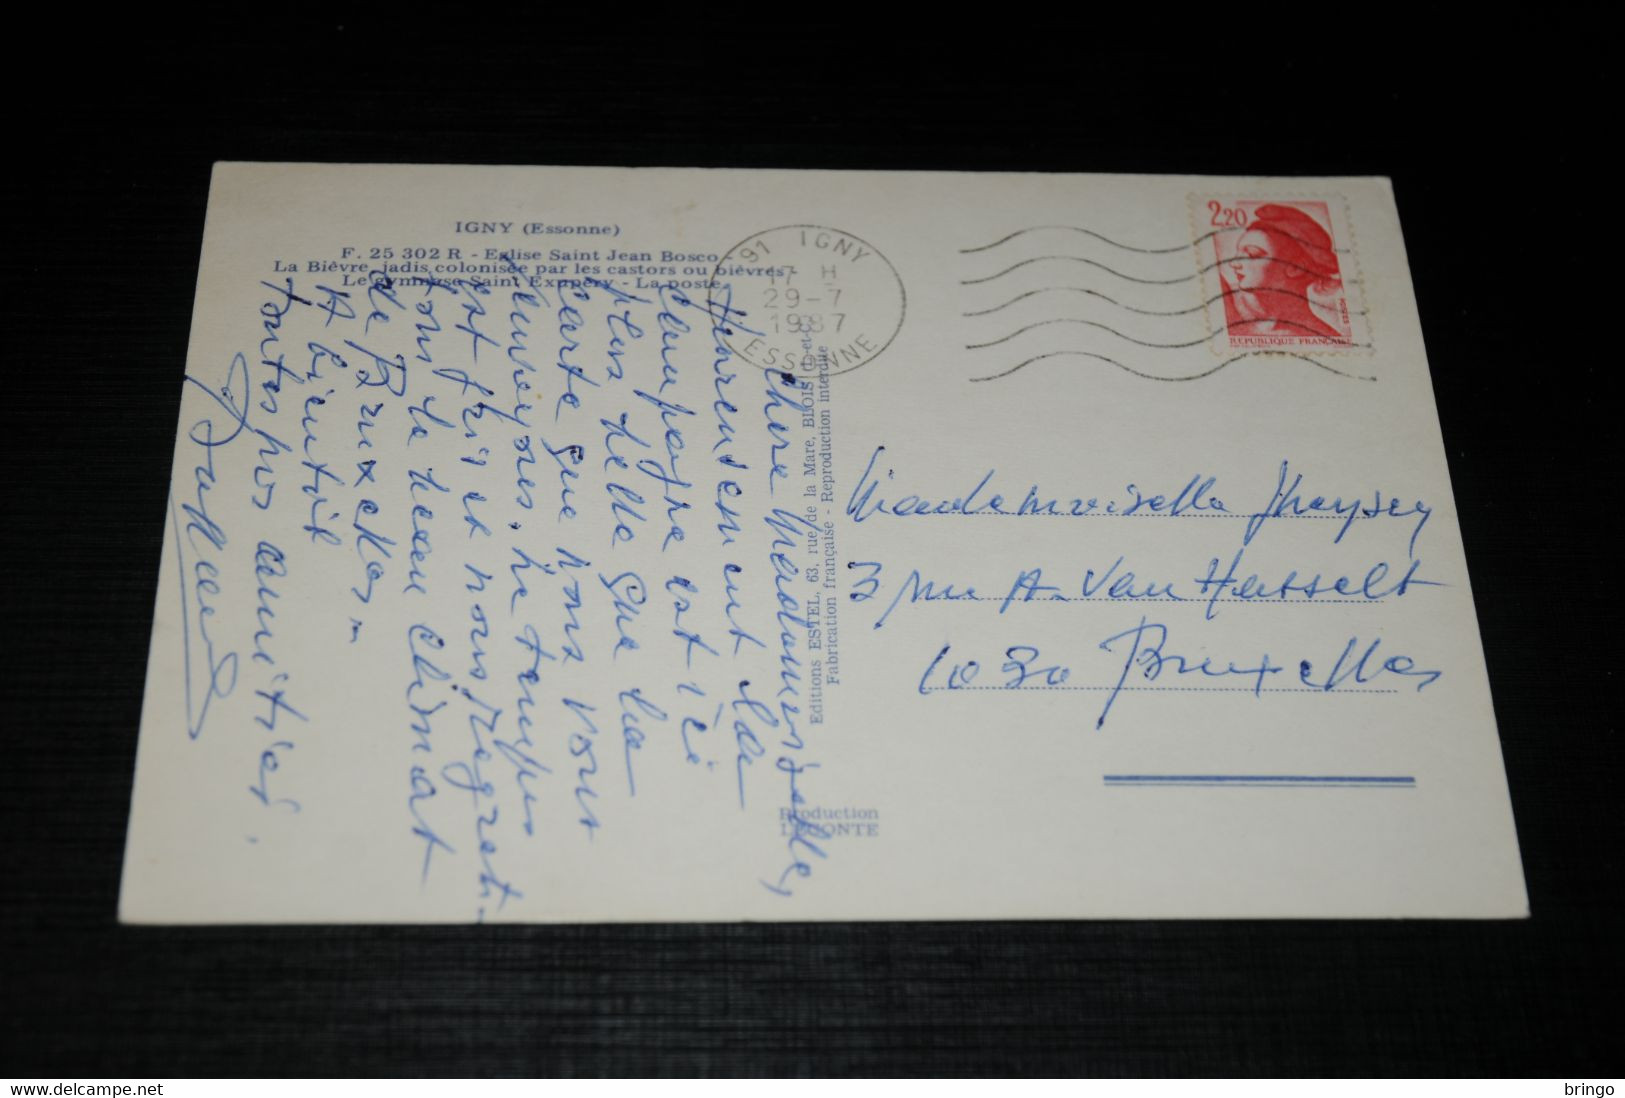 IGNY (Essonne)
F. 25 302 R - Eglise Saint Jean Bosco -
La Bièvre, jadis colonisée par les castors ou bièvres -
Le gymnase Saint Exupéry - La poste.
91 IGNY
17 H
29-7
1987
ESSONNE
2,20
REPUBLIQUE FRANÇAISE
Chère Mademoiselle,
Heureusement la
campagne est ici
plus belle que la
carte que nous vous
envoyons. Le temps
est frais et nous regretti-
ons le beau climat
de Bruxelles...
A bientôt
Toutes nos amitiés.
Editions ESTEL, 63, rue de la Mare, BLOIS (L-et-C)
Fabrication française - Reproduction interdite
Production
LECONTE
Mademoiselle
3 rue A. Van Hasselt
1030 Bruxelles
delcampe.net
bringo